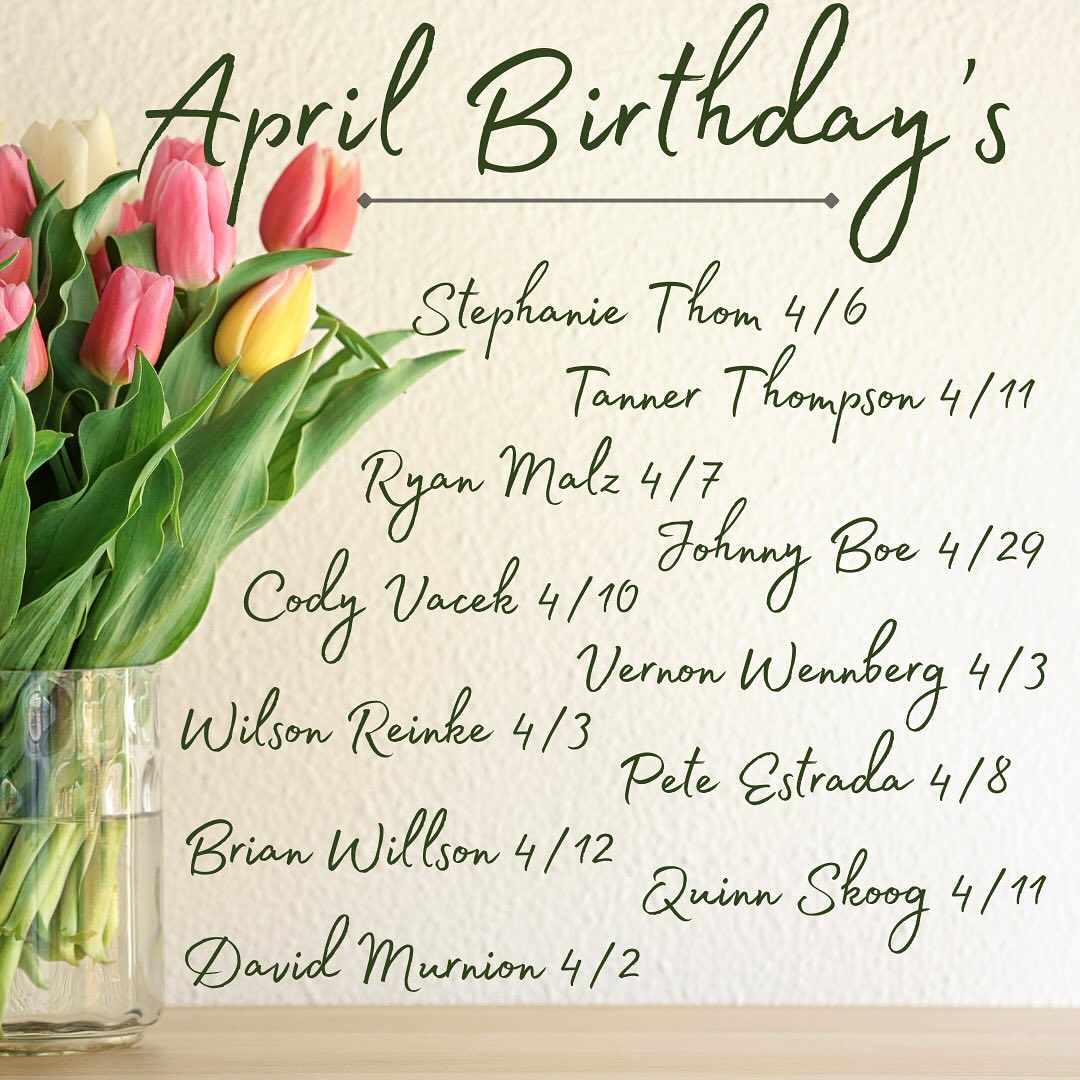 April Birthday's
Stephanie Thom 4/6
Tanner Thompson 4/11
Ryan Malz 4/7
Johnny Boe 4/29
Cody Vacek 4/10
Vernon Wennberg 4/3
Wilson Reinke 4/3
Pete Estrada 4/8
Brian Willson 4/12
Quinn Skoog 4/11
David Murnion 4/2